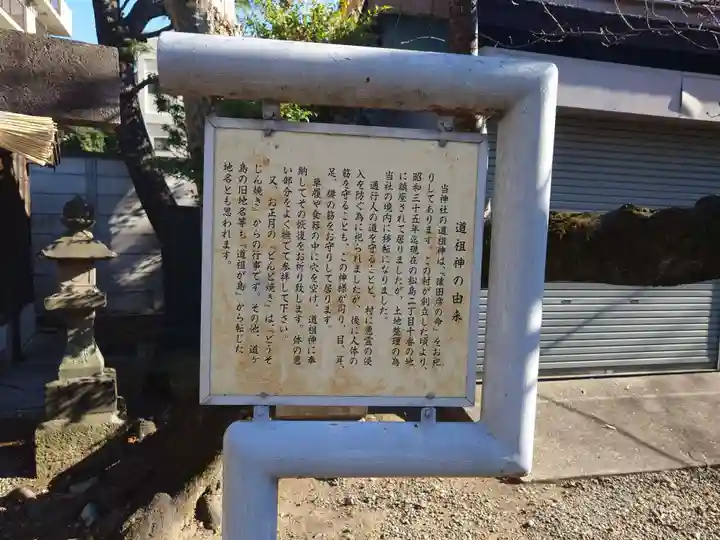 道祖神の由来
当神社の道祖神は、「猿田彦の命」をお祀
りしてあります。この村が創立した頃より、
昭和三十五年迄現在の松島二丁目十番の地
に鎮座されて居りましたが、土地整理の為
当社の境内に移転になりました。
通行人の道を守ることと、村に悪霊の侵
入を防ぐ為に祀られましたが、後に人体の
筋を守ることも、この神様が司り、目、耳、
足、體の筋をお守りして居ります。
草履や食器の中に穴を空け、道祖神に奉
納してその恢復をお祈り致します。体の悪
い部分をよく撫でて参拝して下さい。
又、お正月の「どんど焼き」は、「どうそ
じん焼き」からの行事です。その他、道ヶ
島の旧地名等も「道祖が島」から転じた
地名とも思われます。